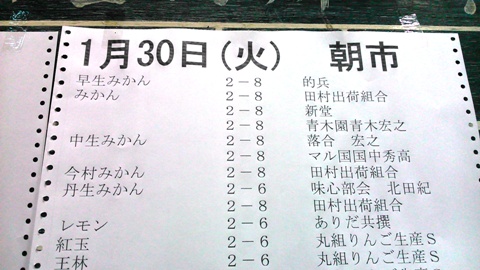 1月30日(火) 朝市
早生みかん 2-8 的兵
みかん 2-8 田村出荷組合
2-8 新堂
2-8 青木園青木宏之
中生みかん 2-8 落合 宏之
2-8 マル国国中秀高
今村みかん 2-8 田村出荷組合
丹生みかん 2-6 味心部会 北田紀
2-8 田村出荷組合
レモン 2-6 ありだ共撰
紅玉 2-6 丸組りんご生産S
王林 2-6 丸組りんご生産S